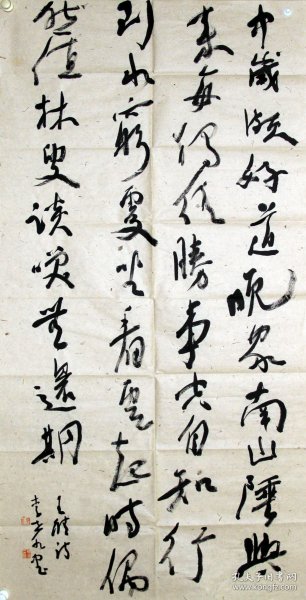 中歲頗好道晚家南山陲興
来每獨往勝事空自知行
到水窮處坐看雲起時偶
然值林叟談咲無還期
王維詩